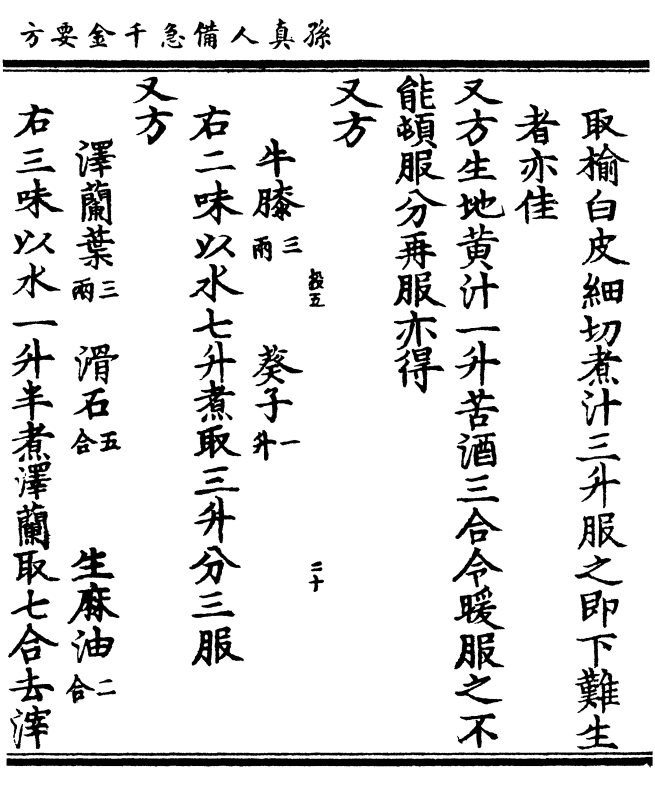 孫真人備急千金要方
取榆白皮細切煮汁三升服之即下難生
者亦佳
又方生地黄汁一升苦酒三合令暖服之不
能頓服分再服亦得
又方
牛膝三兩 葵子一升
右二味以水七升煮取三升分三服
又方
澤蘭葉三兩 滑石五合 生麻油二合
右三味以水一升半煮澤蘭取七合去滓
投五 二十